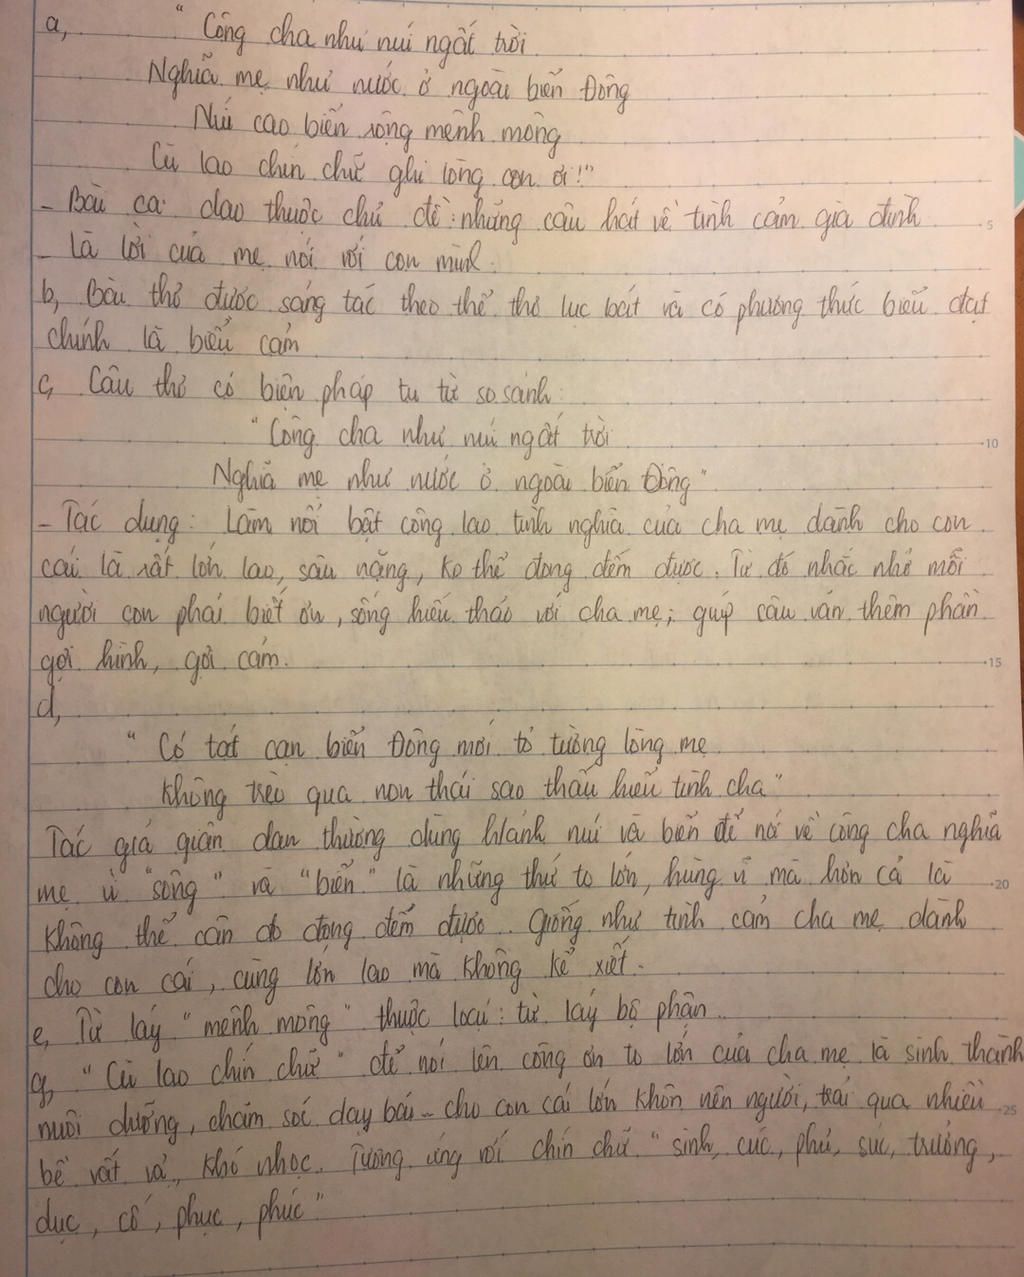 a, "Công cha như núi ngất trời
Nghĩa mẹ như nước ở ngoài biển Đông
Núi cao biển rộng mênh mông
Cù lao chín chữ ghi lòng con ơi!"
- Bài ca dao thuộc chủ đề: những câu hát về tình cảm gia đình 5
- Là lời của mẹ nói với con mình.
b, Bài thơ được sáng tác theo thể thơ lục bát và có phương thức biểu đạt
chính là biểu cảm
c, Câu thơ có biện pháp tu từ so sánh:
"Công cha như núi ngất trời 10
Nghĩa mẹ như nước ở ngoài biển Đông"
- Tác dụng: Làm nổi bật công lao tình nghĩa của cha mẹ dành cho con
cái là rất lớn lao, sâu nặng, ko thể đong đếm được. Từ đó nhắc nhở mỗi
người con phải biết ơn, sống hiếu thảo với cha mẹ; giúp câu văn thêm phần
gợi hình, gợi cảm. 15
d,
"Có tát cạn biển Đông mới tỏ tường lòng mẹ
Không trèo qua non thái sao thấu hiểu tình cha"
Tác giả dân thường dùng h/ảnh núi và biển để nói về công cha nghĩa
mẹ vì "sông" và "biển" là những thứ to lớn, hùng vĩ mà hơn cả là 20
không thể cân đo đong đếm được. Giống như tình cảm cha mẹ dành
cho con cái, cũng lớn lao mà không kể xiết.
e, Từ láy "mênh mông" thuộc loại: từ láy bộ phận.
g, "Cù lao chín chữ" để nói lên công ơn to lớn của cha mẹ là sinh thành
nuôi dưỡng, chăm sóc dạy bảo... cho con cái lớn khôn nên người, trải qua nhiều 25
bề vất vả, khó nhọc. Tương ứng với chín chữ "sinh, cúc, phủ, súc, trưởng,
dục, cố, phục, phúc"